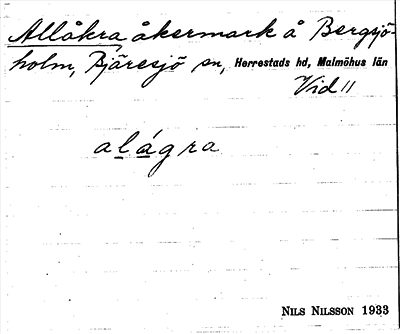 Allåkra, åkermark å Bergsjö-
holm, Bjäresjö sn, Herrestads hd, Malmöhus län
Vid 11
alágra
NILS NILSSON 1933